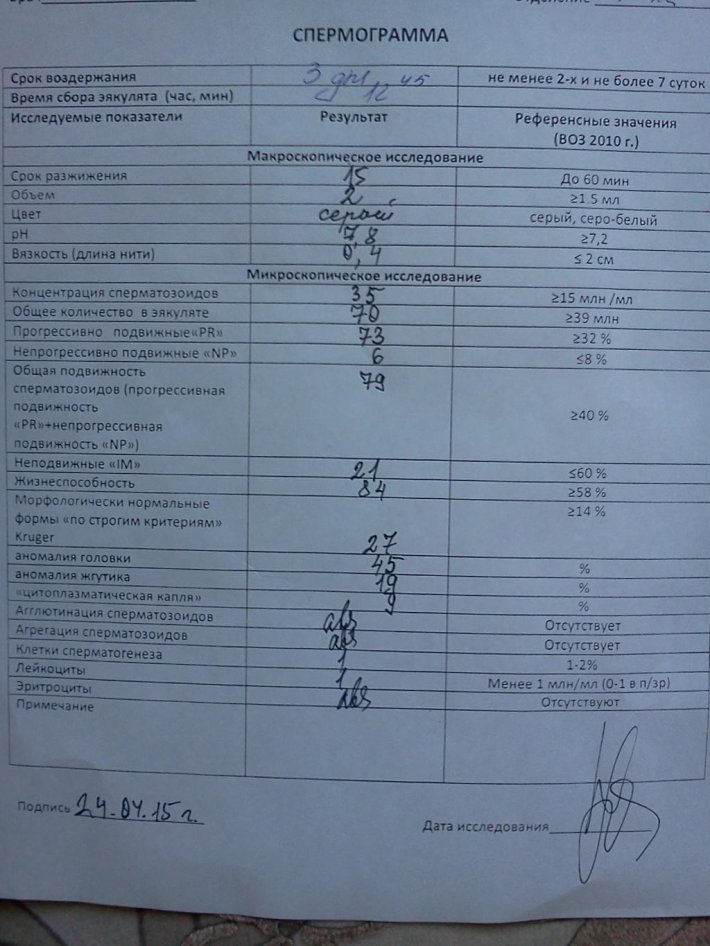 СПЕРМОГРАММА
Срок воздержания 3 дня не менее 2-х и не более 7 суток
Время сбора эякулята (час, мин) 12 45
Исследуемые показатели Результат Референсные значения
(ВОЗ 2010 г.)
Макроскопическое исследование
Срок разжижения 15 До 60 мин
Объем 2 ≥1.5 мл
Цвет серый серый, серо-белый
pH 7,8 ≥7,2
Вязкость (длина нити) 0,4 ≤ 2 см
Микроскопическое исследование
Концентрация сперматозоидов 35 ≥15 млн /мл
Общее количество в эякуляте 70 ≥39 млн
Прогрессивно подвижные«PR» 73 ≥32 %
Непрогрессивно подвижные «NP» 6 ≤8 %
Общая подвижность 79
сперматозоидов (прогрессивная
подвижность ≥40 %
«PR»+непрогрессивная
подвижность «NP»)
Неподвижные «IM» 21 ≤60 %
Жизнеспособность 84 ≥58 %
Морфологически нормальные ≥14 %
формы «по строгим критериям»
Kruger 27
аномалия головки 45 %
аномалия жгутика 19 %
«цитоплазматическая капля» 9 %
Агглютинация сперматозоидов abs Отсутствует
Агрегация сперматозоидов abs Отсутствует
Клетки сперматогенеза 1 1-2%
Лейкоциты 1 Менее 1 млн/мл (0-1 в п/зр)
Эритроциты abs Отсутствуют
Примечание
Подпись 24.04.15 г.
Дата исследования